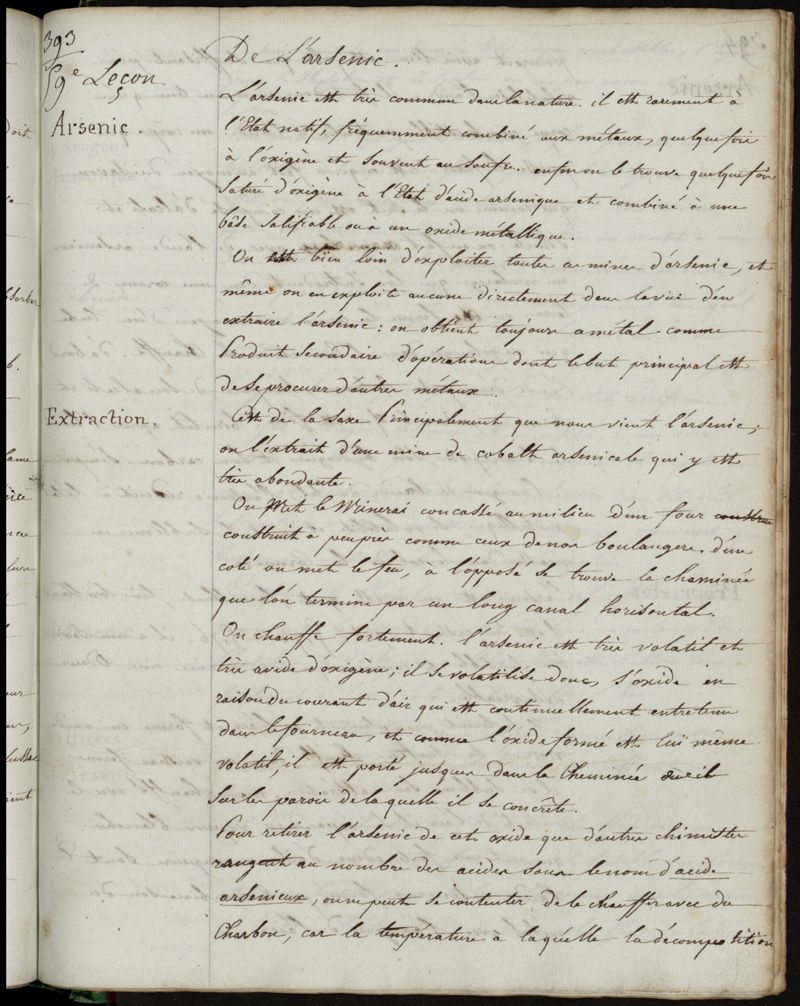 393
59e Leçon
De L'arsenic.
Arsenic.
L'arsenic est très commun dans la nature. il est rarement à
l'Etat natif, fréquemment combiné aux métaux, quelquefois
à l'oxigène et souvent au soufre. enfin on le trouve quelquefois
saturé d'oxigène à l'Etat d'acide arsenique et combiné à une
bâse salifiable ou à un oxide métallique.
On est bien loin d'exploiter toutes ces mines d'arsenic, et
même on en exploite aucune directement dans la vue d'en
extraire l'arsenic : on obtient toujours ce métal comme
Produit secondaire d'opérations dont le but principal est
de se procurer d'autres métaux.
Extraction.
C'est de la saxe Principalement que nous vient l'arsenic;
on l'extrait d'une mine de cobalt arsenicale qui y est
très abondante.
On Met le Minerai concassé au milieu d'un four
construit à peuprès comme ceux de nos boulangers, d'un
coté on met le feu, à l'opposé se trouve la cheminée
que l'on termine par un long canal horisontal.
On chauffe fortement. l'arsenic est très volatil et
très avide d'oxigène; il se volatilise donc, s'oxide en
raison du courant d'air qui est continuellement entretenu
dans le fourneau, et comme l'oxide formé est lui même
volatil, il est porté jusques dans la Cheminée
sur les parois de laquelle il se concrête.
Pour retirer l'arsenic de cet oxide que d'autres chimistes
rangent au nombre des acides sous le nom d'acide
arsenieux, on ne peut se contenter de le chauffer avec du
Charbon, car la température à laquelle la décomposition